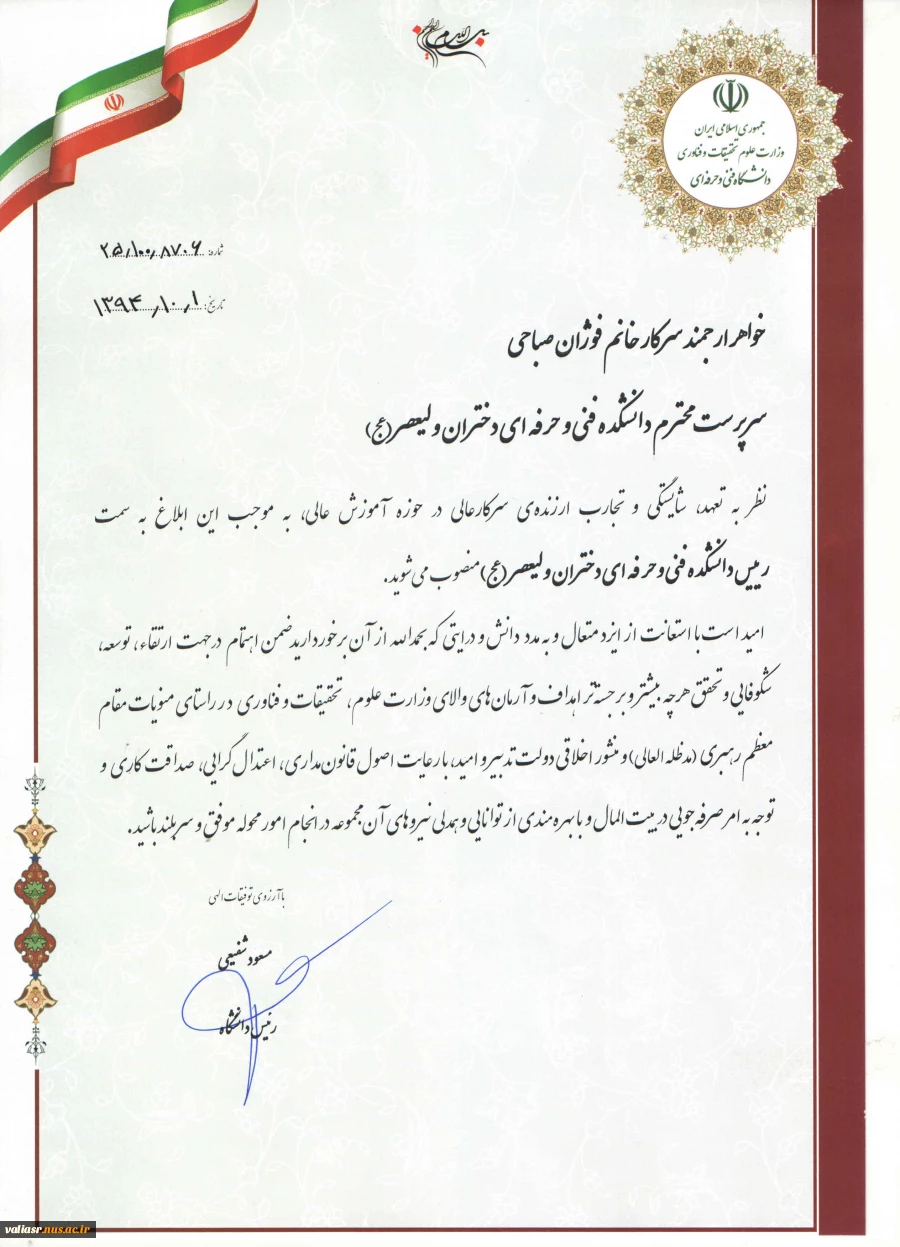 بسم الله الرحمن الرحیم
جمهوری اسلامی ایران
وزارت علوم تحقیقات و فناوری
دانشگاه فنی و حرفه‌ای
شماره: ۲۵/۱۰۰/۸۷۰۶
تاریخ: ۱۳۹۴/۱۰/۱
خواهر ارجمند سرکار خانم فوژان صباحی
سرپرست محترم دانشکده فنی و حرفه ای دختران ولیعصر(عج)
نظر به تعهد، شایستگی و تجارب ارزنده‌ی سرکارعالی در حوزه آموزش عالی، به موجب این ابلاغ به سمت
رییس دانشکده فنی و حرفه ای دختران ولیعصر(عج) منصوب می شوید.
امید است با استعانت از ایزد متعال و به مدد دانش و درایتی که بحمدالله از آن برخوردارید ضمن اهتمام در جهت ارتقاء، توسعه،
شکوفایی و تحقق هرچه بیشتر و برجسته‌تر اهداف و آرمان های والای وزارت علوم، تحقیقات و فناوری در راستای منویات مقام
معظم رهبری (مدظله العالی) و منشور اخلاقی دولت تدبیر و امید، با رعایت اصول قانون مداری، اعتدال گرایی، صداقت کاری و
توجه به امر صرفه جویی در بیت المال و با بهره مندی از توانایی و همدلی نیروهای آن مجموعه در انجام امور محوله موفق و سربلند باشید.
با آرزوی توفیقات الهی
مسعود شفیعی
رئیس دانشگاه
valiasr.nus.ac.ir